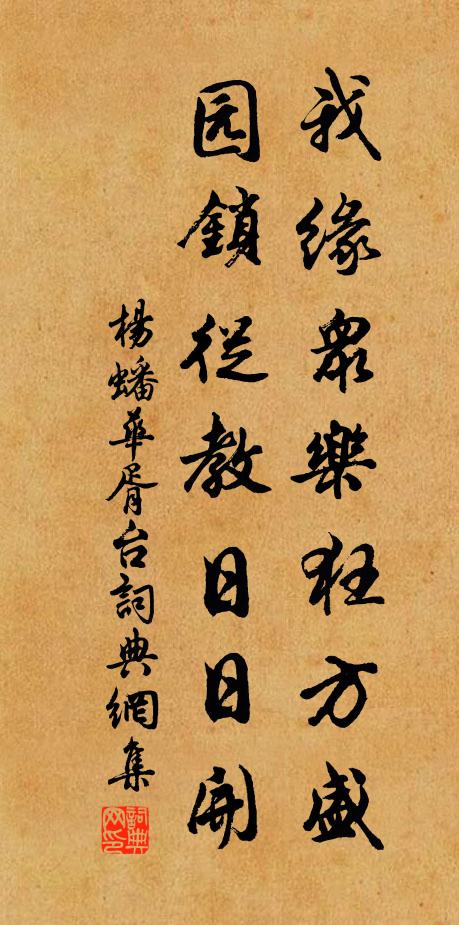 我緣衆樂狂方盛
园鎖從教日日開
楊蟠華胥台詞典網集
詞典
网印